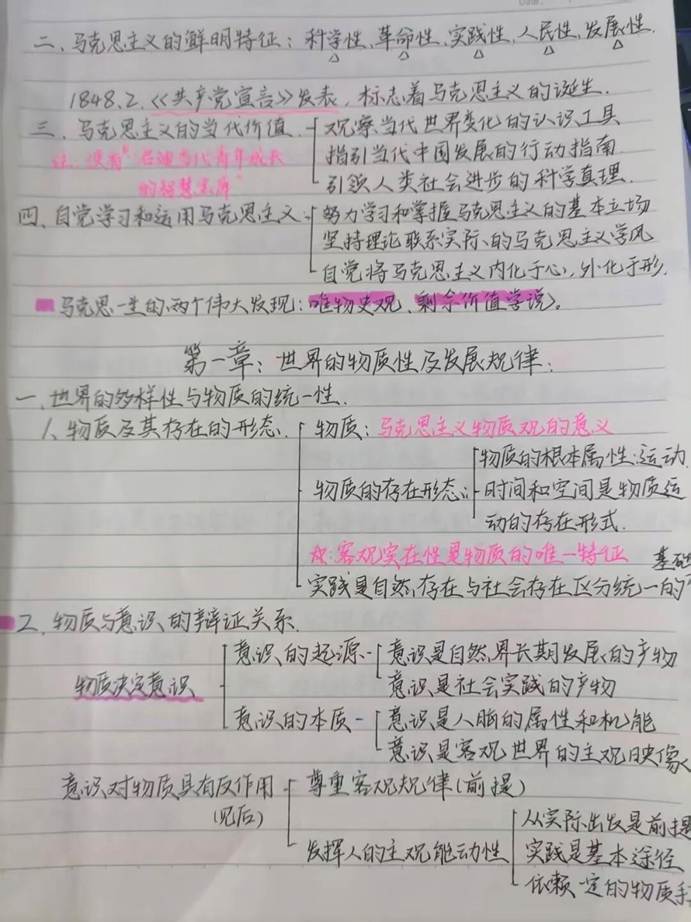 二、马克思主义的鲜明特征：科学性、革命性、实践性、人民性、发展性.
1848.2.《共产党宣言》发表，标志着马克思主义的诞生.
三、马克思主义的当代价值
观察当代世界变化的认识工具
指引当代中国发展的行动指南
引领人类社会进步的科学真理.
注：没有
四、自觉学习和运用马克思主义
努力学习和掌握马克思主义的基本立场
坚持理论联系实际的马克思主义学风
自觉将马克思主义内化于心，外化于形.
马克思一生的两个伟大发现：唯物史观、剩余价值学说。
第一章：世界的物质性及发展规律：
一、世界的多样性与物质的统一性.
1、物质及其存在的形态.
物质：马克思主义物质观的意义
物质的存在形态：
物质的根本属性：运动.
时间和空间是物质运
动的存在形式.
注：客观实在性是物质的唯一特征
基础
实践是自然存在与社会存在区分统一的
2、物质与意识的辩证关系.
物质决定意识
意识的起源
意识是自然界长期发展的产物
意识是社会实践的产物
意识的本质
意识是人脑的属性和机能
意识是客观世界的主观映像
意识对物质具有反作用
(见后)
尊重客观规律(前提)
发挥人的主观能动性
从实际出发是前提
实践是基本途径
依赖一定的物质手